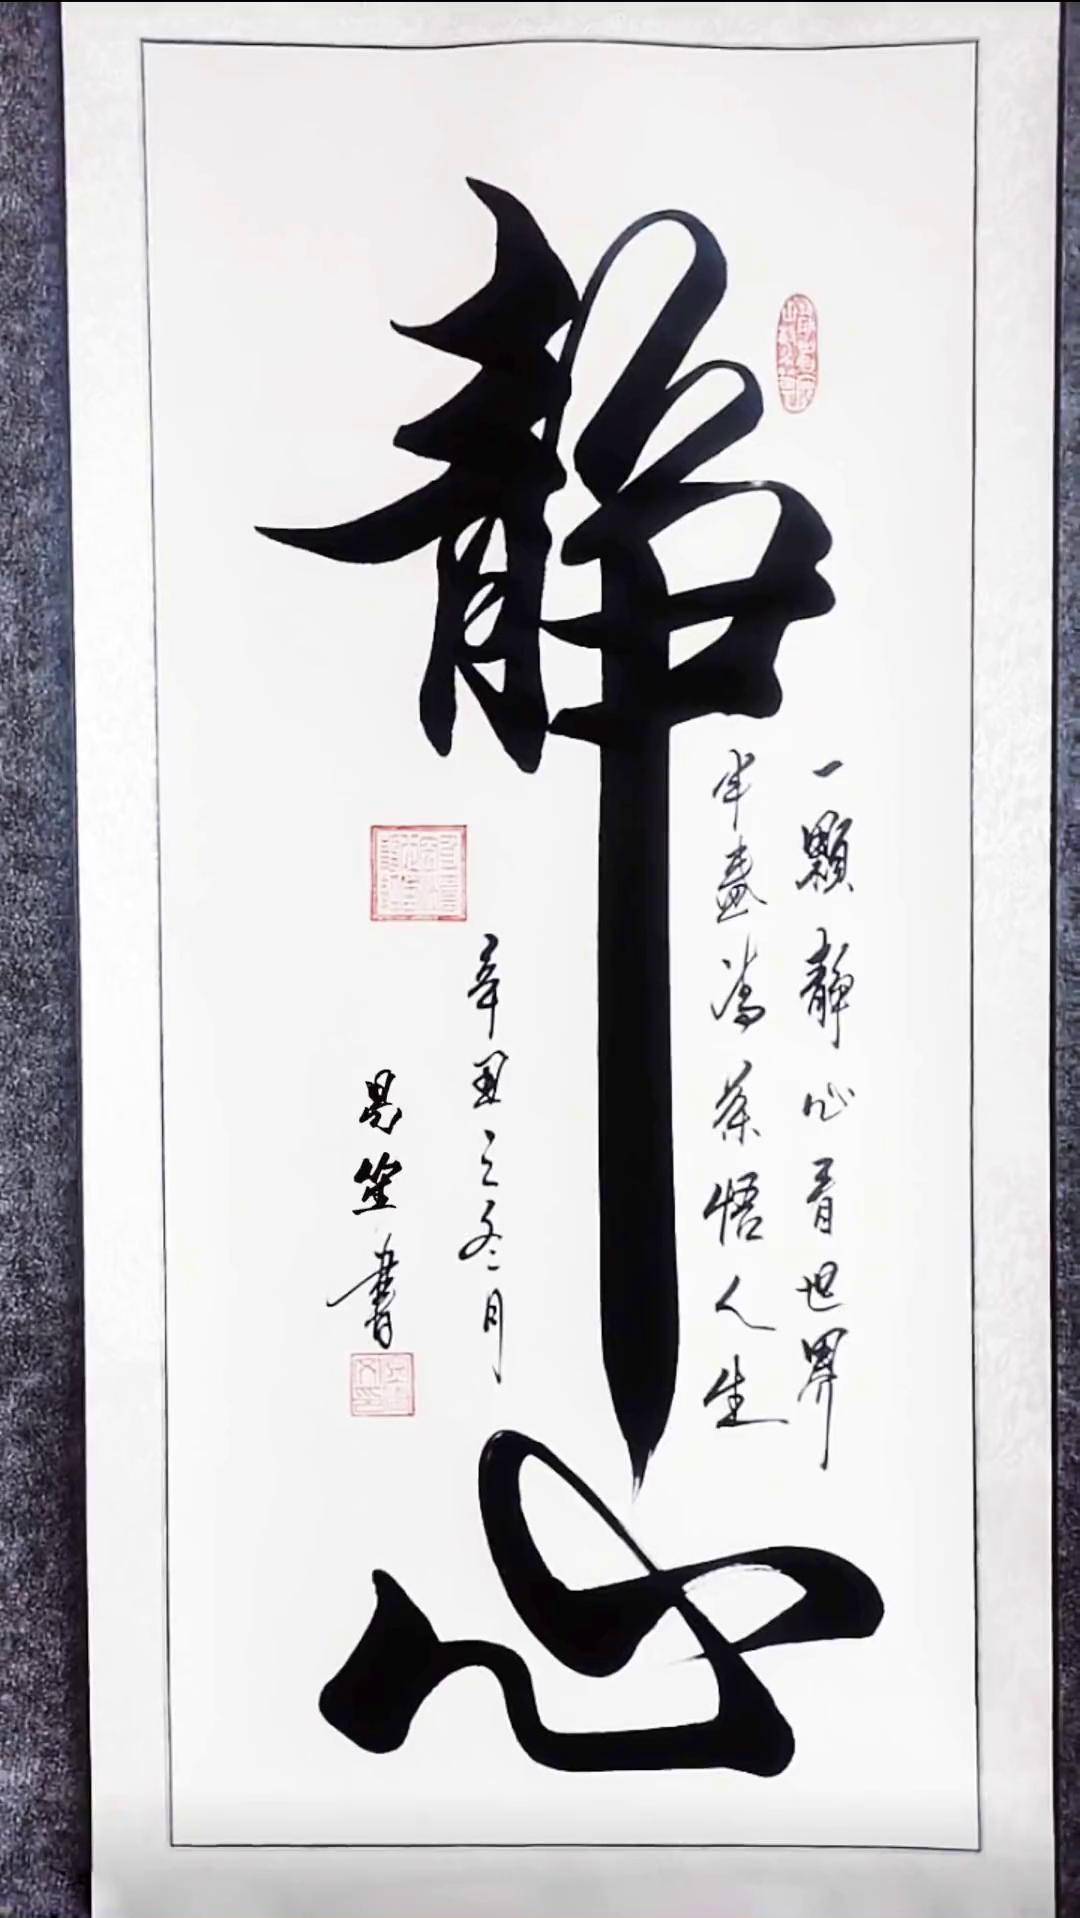 静心
一顆静心看世界
半盏清茶悟人生
辛丑之冬月
易笙書